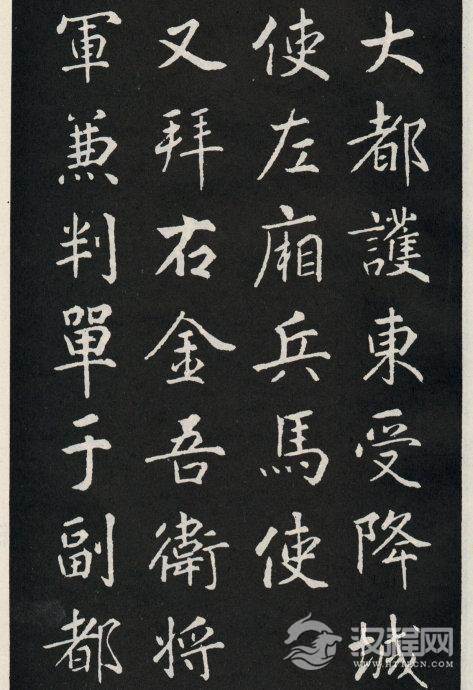 大都護東受降城
使左廂兵馬使
又拜右金吾衛将
軍兼判單于副都
汉程网
WWW.HTTPCN.COM